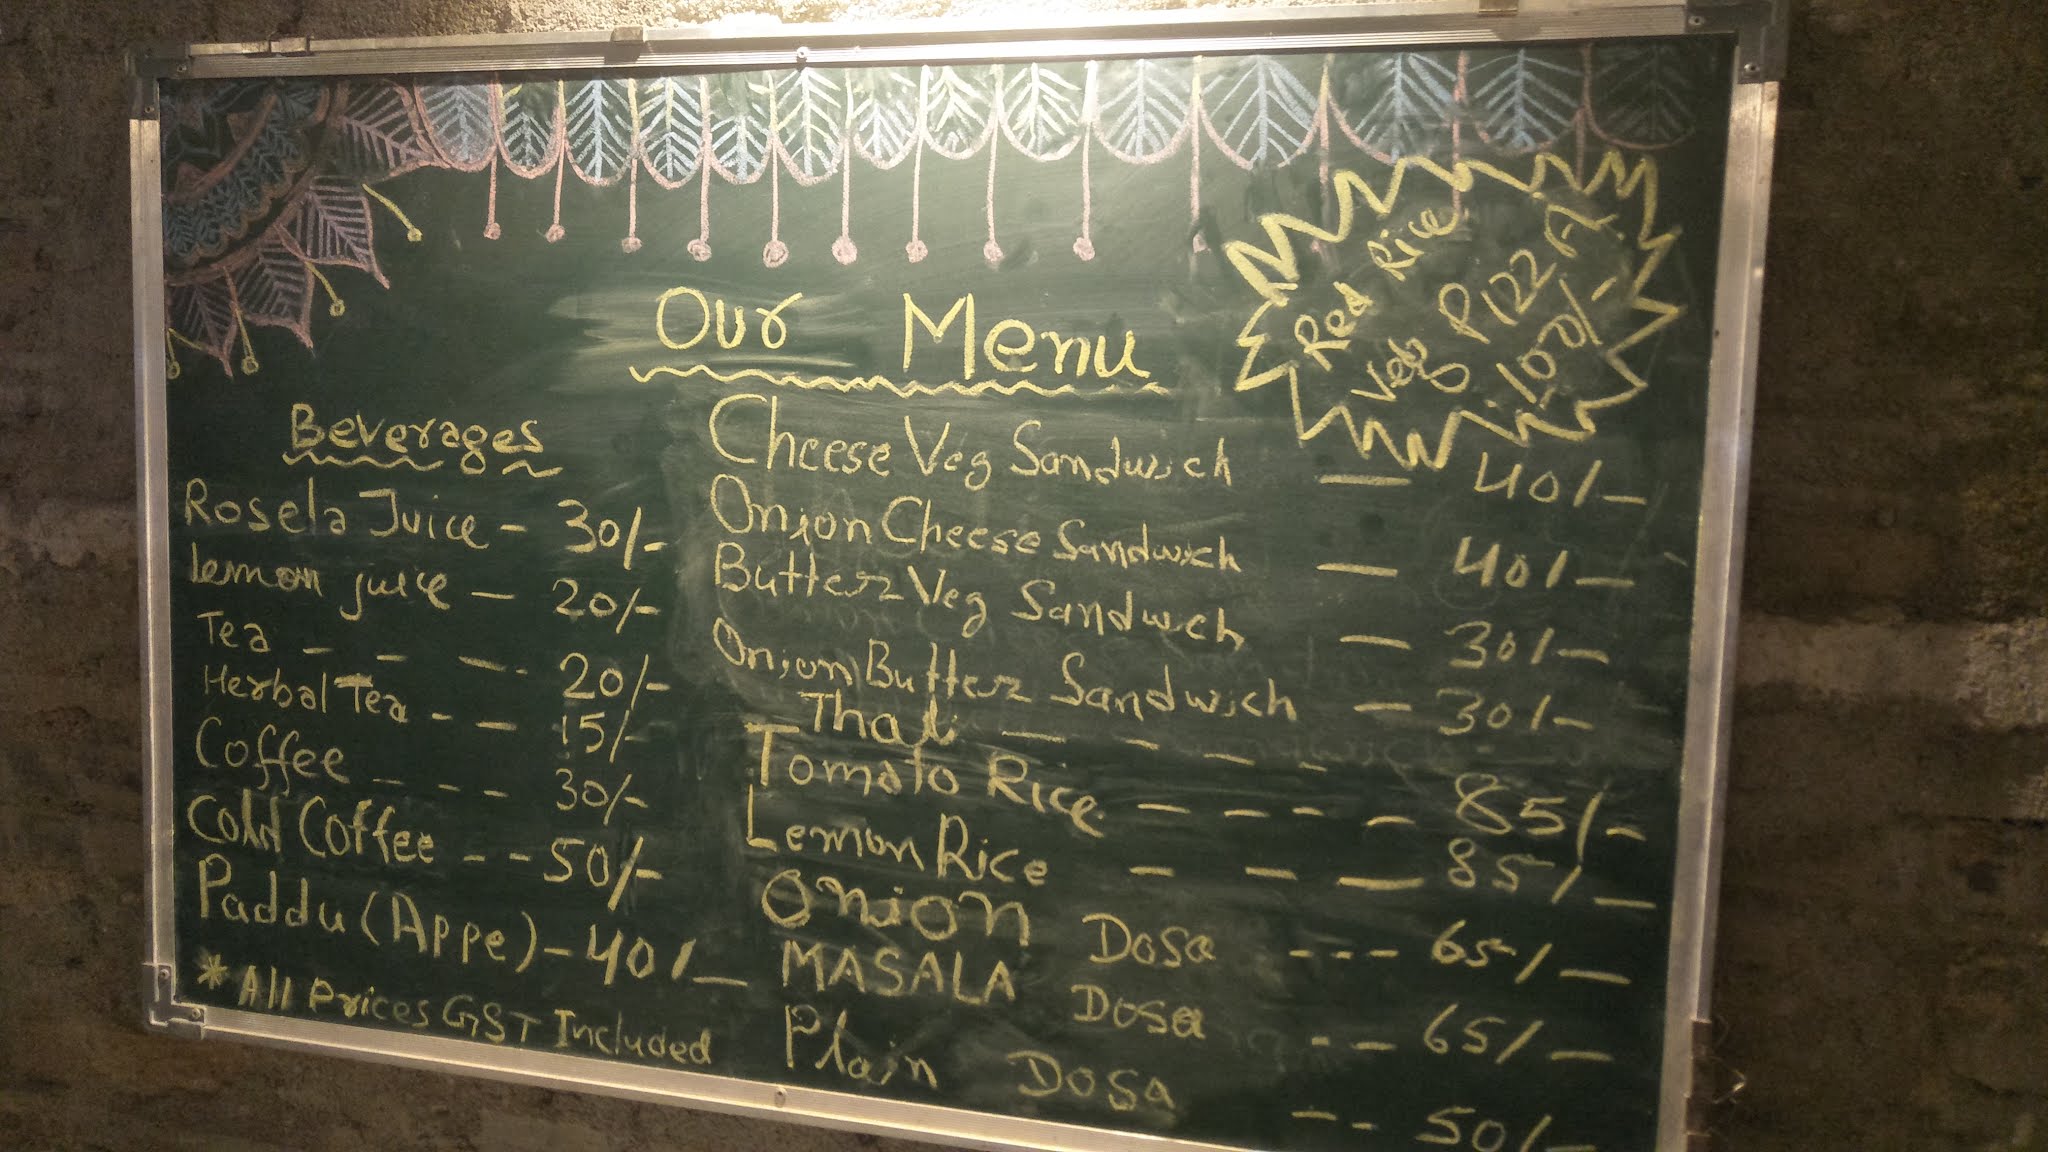 Our Menu
Red Rice
Veg PIZZA
100/-
Beverages
Rosela Juice - 30/-
lemon juice - 20/-
Tea - - - - 20/-
Herbal Tea - - 15/-
Coffee - - - - 30/-
Cold Coffee - - 50/-
Paddu (Appe) - 40/-
* All Prices GST Included
Cheese Veg Sandwich - 40/-
Onion Cheese Sandwich - 40/-
Butter Veg Sandwich - 30/-
Onion Butter Sandwich - 30/-
Thali - - - -
Tomato Rice - - - - 85/-
Lemon Rice - - - 85/-
Onion Dosa - - - 65/-
MASALA Dosa - - 65/-
Plain Dosa - - 50/-